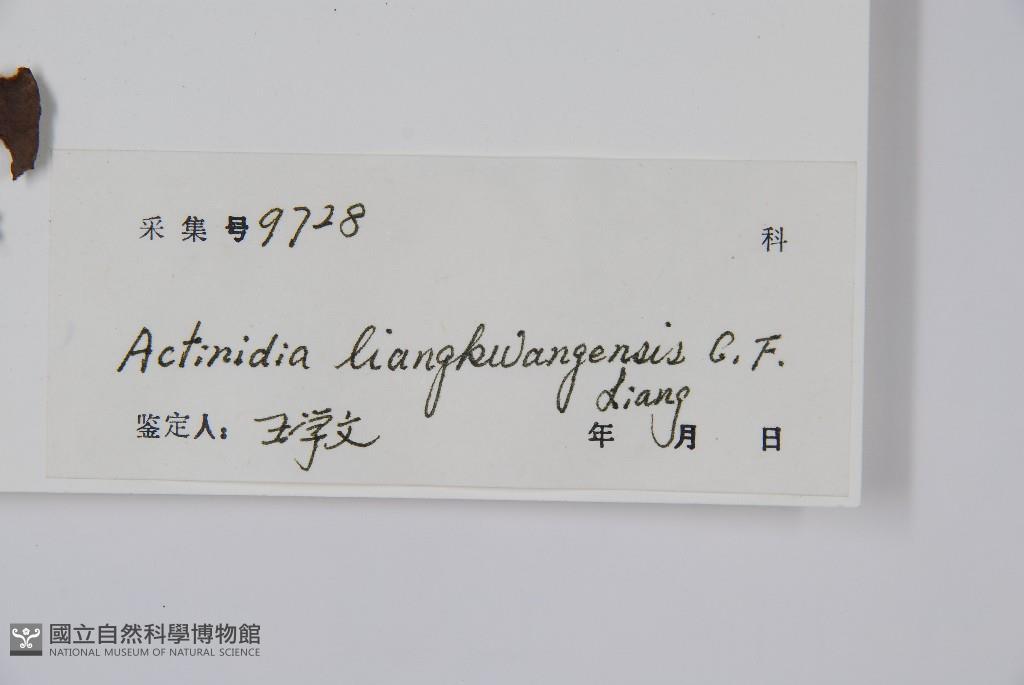 采集号9728 科
Actinidia liangkwangensis C. F.
Liang
鉴定人: 王学文 年 月 日
國立自然科學博物館
NATIONAL MUSEUM OF NATURAL SCIENCE